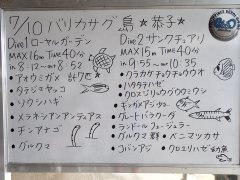 7/10 バリカサグ島 ★恭子★
Dive1 ローヤルガーデン
MAX16m Time40分
in 8:12 → out 8:52
・アオウミガメ 計7匹
・タテジマヤッコ
・ソウシハギ
・メラネシアンアンティアス
・チンアナゴ
・グルクマ
Dive2 サンクチュアリ
MAX15m Time40分
in 9:55 → out 10:35
・クラカケチョウチョウウオ
・ハタタテハゼ
・クロスジリュウグウウミウシ
・ギンガメアジ
・グレートバラクーダ
・ランドールフュージュラー
・グルクマ群 ・ベニマツカサ
・コバンアジ ・クロユリハゼ幼魚